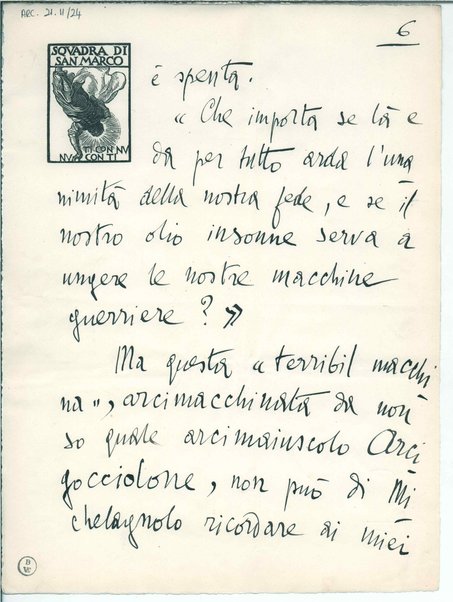 ARC. 21. II/24
6
SQVADRA DI
SAN MARCO
TI CON NV
NV CON TI
è spenta.
« Che importa se là e
da per tutto arda l'una
nimità della nostra fede, e se il
nostro olio insonne serva a
ungere le nostre macchine
guerriere? »
Ma questa « terribil macchi
na », arcimacchinata da non
so quale arcimaiuscolo Arci
gocciolone, non può di Mi
chelagnolo ricordare ai miei